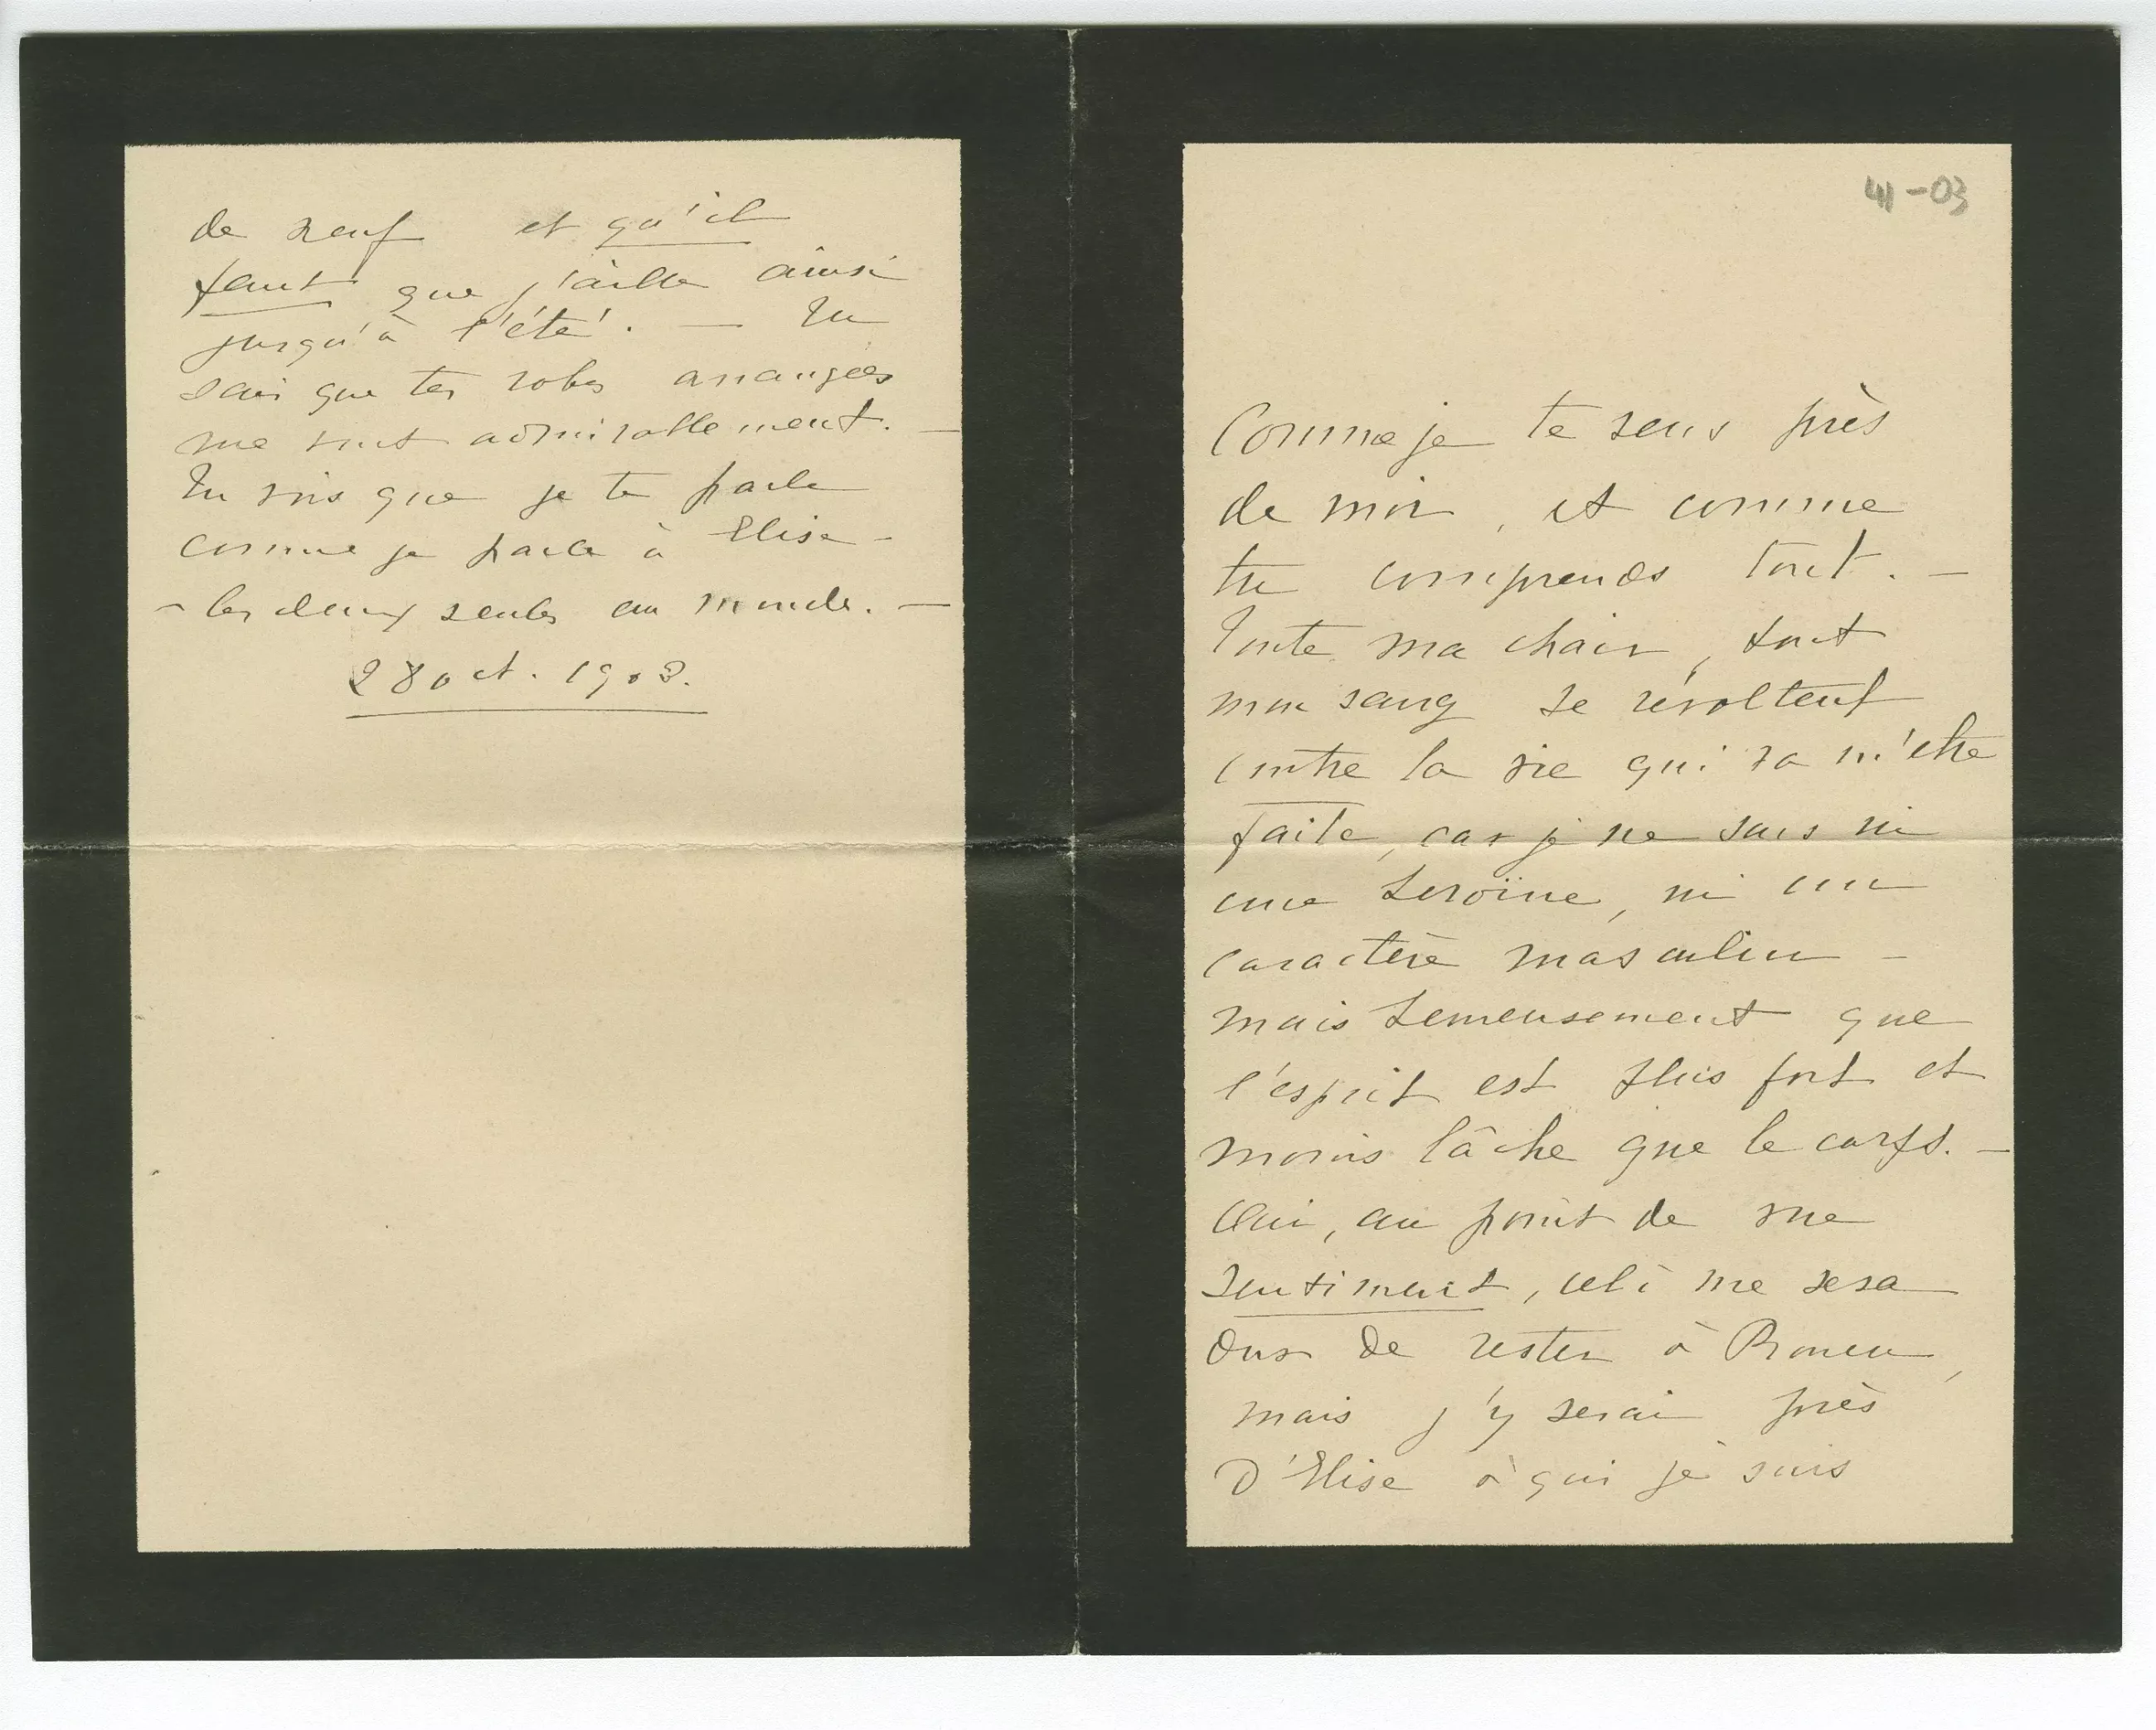 41-03
Comme je te sens près
de moi, et comme
tu comprends tout. —
Toute ma chair, tout
mon sang se révoltent
contre la vie qui va m'être
faite, car je ne suis ni
une héroïne, ni un
caractère masculin —
mais heureusement que
l'esprit est plus fort et
moins lâche que le corps. —
Oui, au point de vue
sentiment, cela me sera
dur de rester à Rouen,
mais j'y serai près
d'Elise à qui je suis
de neuf et qu'il
faut que j'aille ainsi
jusqu'à l'été. — Tu
sais que tes robes arrangées
me vont admirablement. —
Tu vois que je te parle
comme je parle à Elise —
— les deux seules au monde. —
28 oct. 1903.